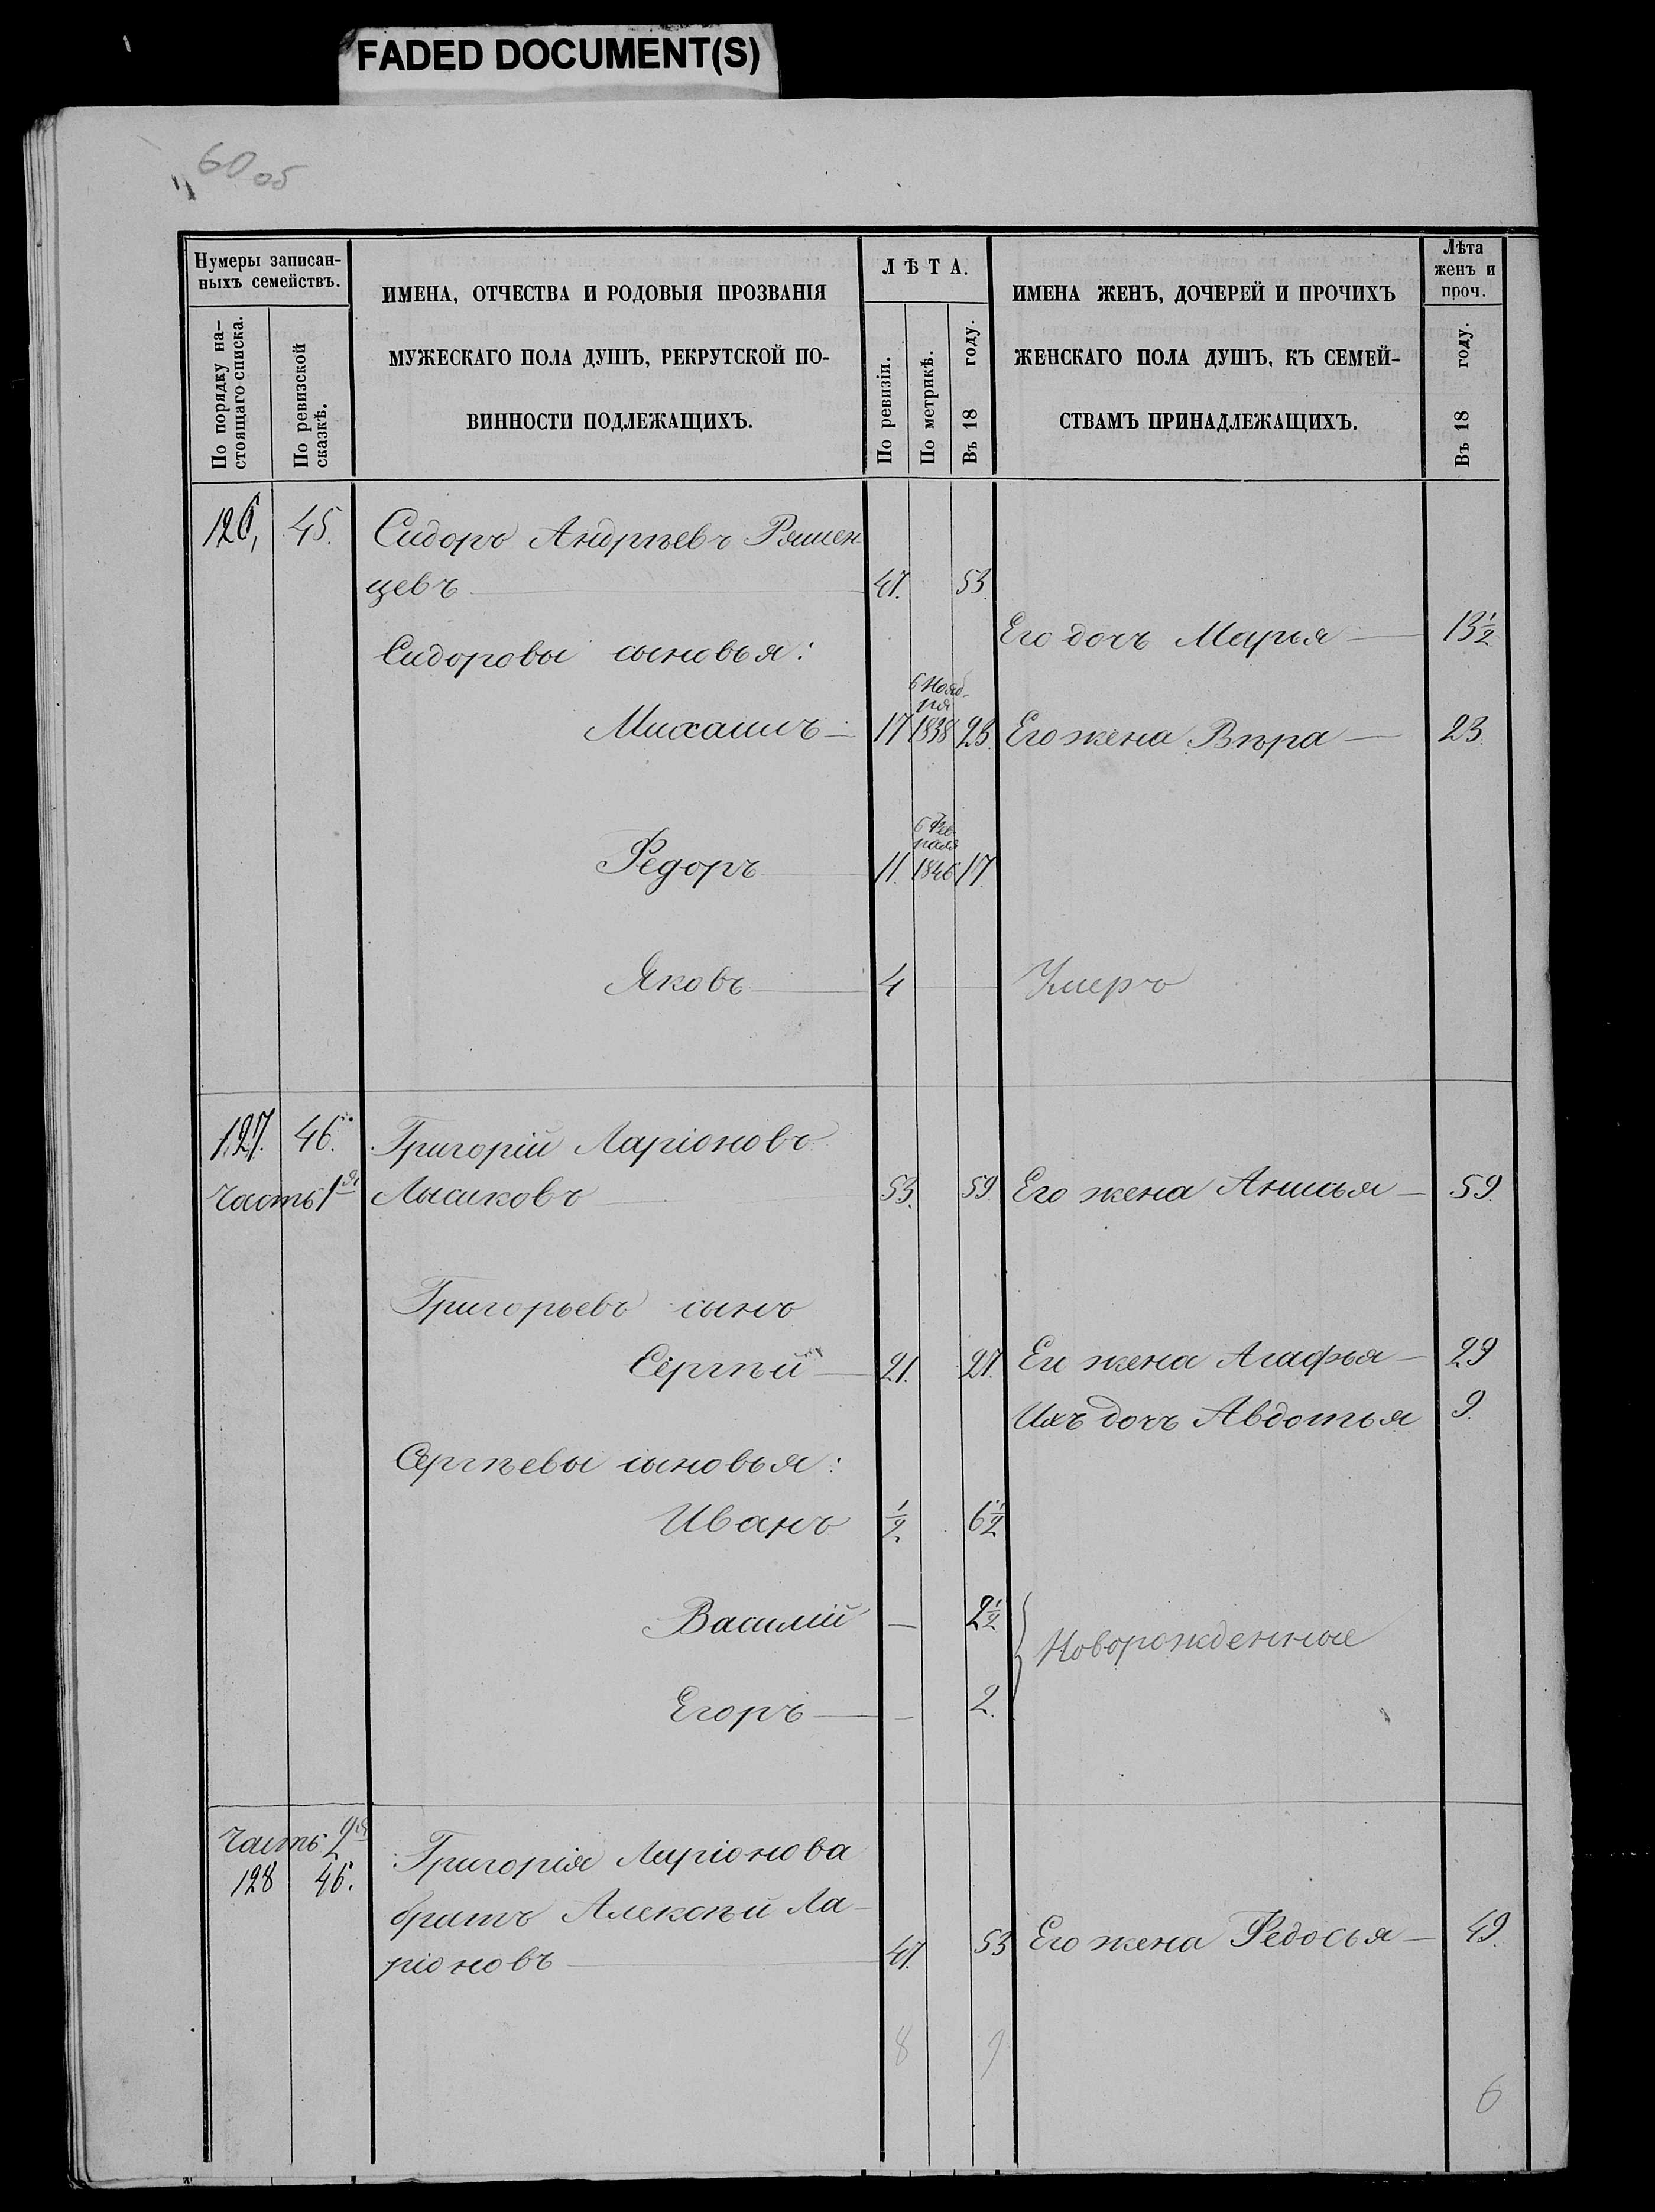 FADED DOCUMENT(S)
60 об
Нумеры записан-
ныхъ семействъ.
По порядку на-
стоящаго списка.
По ревизской
сказкѣ.
ИМЕНА, ОТЧЕСТВА И РОДОВЫЯ ПРОЗВАНІЯ
МУЖЕСКАГО ПОЛА ДУШЪ, РЕКРУТСКОЙ ПО-
ВИННОСТИ ПОДЛЕЖАЩИХЪ.
ЛѢТА.
По ревизіи.
По метрикѣ.
Въ 18 году.
ИМЕНА ЖЕНЪ, ДОЧЕРЕЙ И ПРОЧИХЪ
ЖЕНСКАГО ПОЛА ДУШЪ, КЪ СЕМЕЙ-
СТВАМЪ ПРИНАДЛЕЖАЩИХЪ.
Лѣта
женъ и
проч.
Въ 18 году.
126, 45. Сидоръ Андрѣевъ Ряшен-
цевъ 47. 53.
Его дочь Марья — 13½
Сидоровы сыновья:
6 Нояб-
ря
Михаилъ — 17 1838 23. Его жена Вѣра — 23.
6 Фев
раля
Федоръ 11. 1846 17.
Яковъ 4 Умеръ
127. 46. Григорій Ларіоновъ
Часть 1я Лысиковъ 53. 59 Его жена Анисья — 59.
Григорьевъ сынъ
Сергѣй — 21. 27. Ег жена Агафья — 29
Ихъ дочь Авдотья 9.
Сергѣевы сыновья:
Иванъ ½ 6½
Василій — 2½
Новорожденные
Егоръ — 2.
Часть 2я
128 46. Григорія Ларіонова
братъ Алексѣй Ла-
ріоновъ 47. 53 Его жена Федосья — 49.
8 9
6